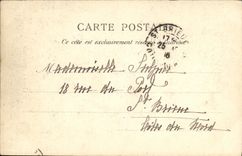 CARTE POSTALE
Ce côté est exclusivement réservé
ST BRIEUC
25
Mademoiselle
18 rue du Port
St Brieuc
Côtes du Nord